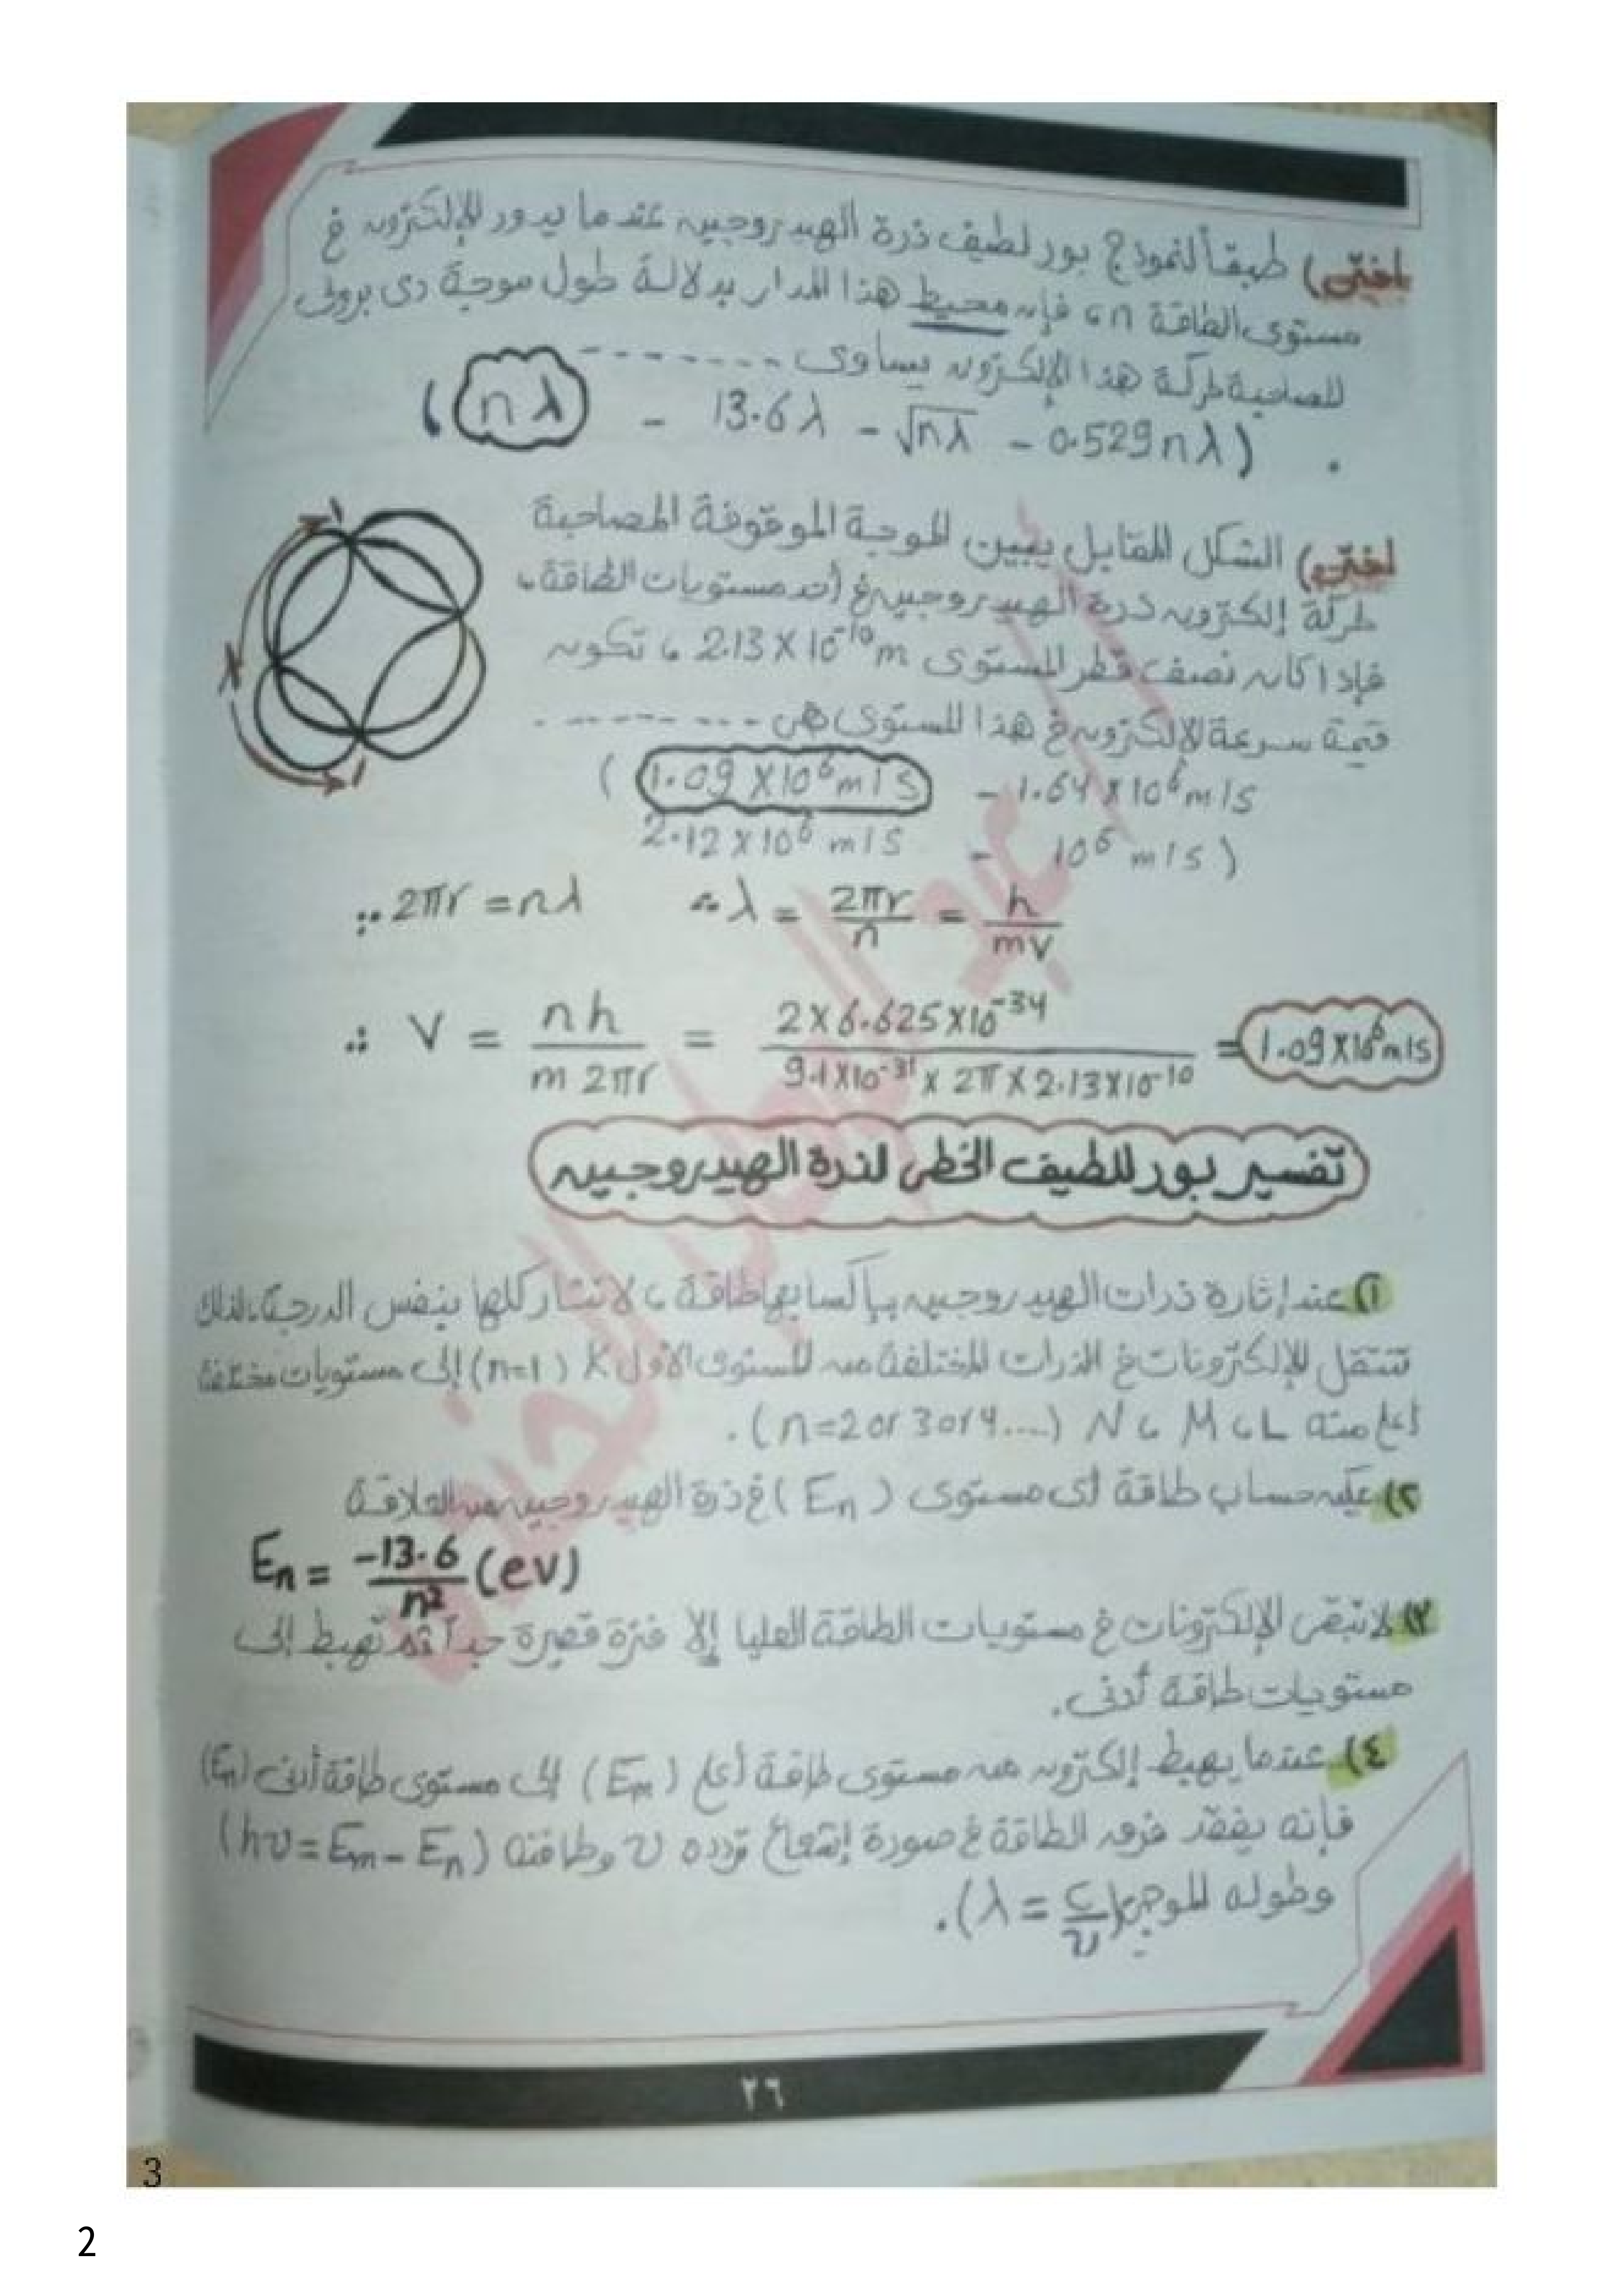 اختر) طبقاً لنموذج بور لطيف ذرة الهيدروجين عندما يدور الإلكترون في
مستوى الطاقة n ، فإن محيط هذا المدار بدلالة طول موجة دى برولى
المصاحبة لحركة هذا الإلكترون يساوى --------
(0.529nλ - √nλ - 13.6λ - nλ)
اختر) الشكل المقابل يبين الموجة الموقوفة المصاحبة
لحركة إلكترون ذرة الهيدروجين في أحد مستويات الطاقة ،
فإذا كان نصف قطر المستوى 2.13 X 10⁻¹⁰ m ، تكون
قيمة سرعة الإلكترون في هذا المستوى هى --------
( 1.09 X10⁶ m/s - 1.64 X 10⁶ m/s
2.12 X 10⁶ m/s - 10⁶ m/s )
∵ 2πr = nλ ∴ λ = 2πr/n = h/mv
∴ V = nh / m 2πr = 2 X 6.625X10⁻³⁴ / 9.1X10⁻³¹ X 2π X 2.13X10⁻¹⁰ = 1.09X10⁶ m/s
تفسير بور للطيف الخطى لذرة الهيدروجين
١) عند إثارة ذرات الهيدروجين بإكسابها طاقة ، لا تثار كلها بنفس الدرجة، لذلك
تنتقل الإلكترونات في الذرات المختلفة من المستوى الأول K (n=1) إلى مستويات مختلفة
أعلى منه L ، M ، N (n=2 or 3 or 4....) .
٢) يمكن حساب طاقة أى مستوى (En) في ذرة الهيدروجين من العلاقة
En = -13.6/n² (ev)
٣) لا تبقى الإلكترونات في مستويات الطاقة العليا إلا فترة قصيرة جداً ثم تهبط إلى
مستويات طاقة أدنى.
٤) عندما يهبط إلكترون من مستوى طاقة أعلى (Em) إلى مستوى طاقة أدنى (En)
فإنه يفقد فرق الطاقة في صورة إشعاع تردده υ وطاقته (hυ = Em - En)
وطوله الموجى (λ = c/υ).
٢٦
3
2